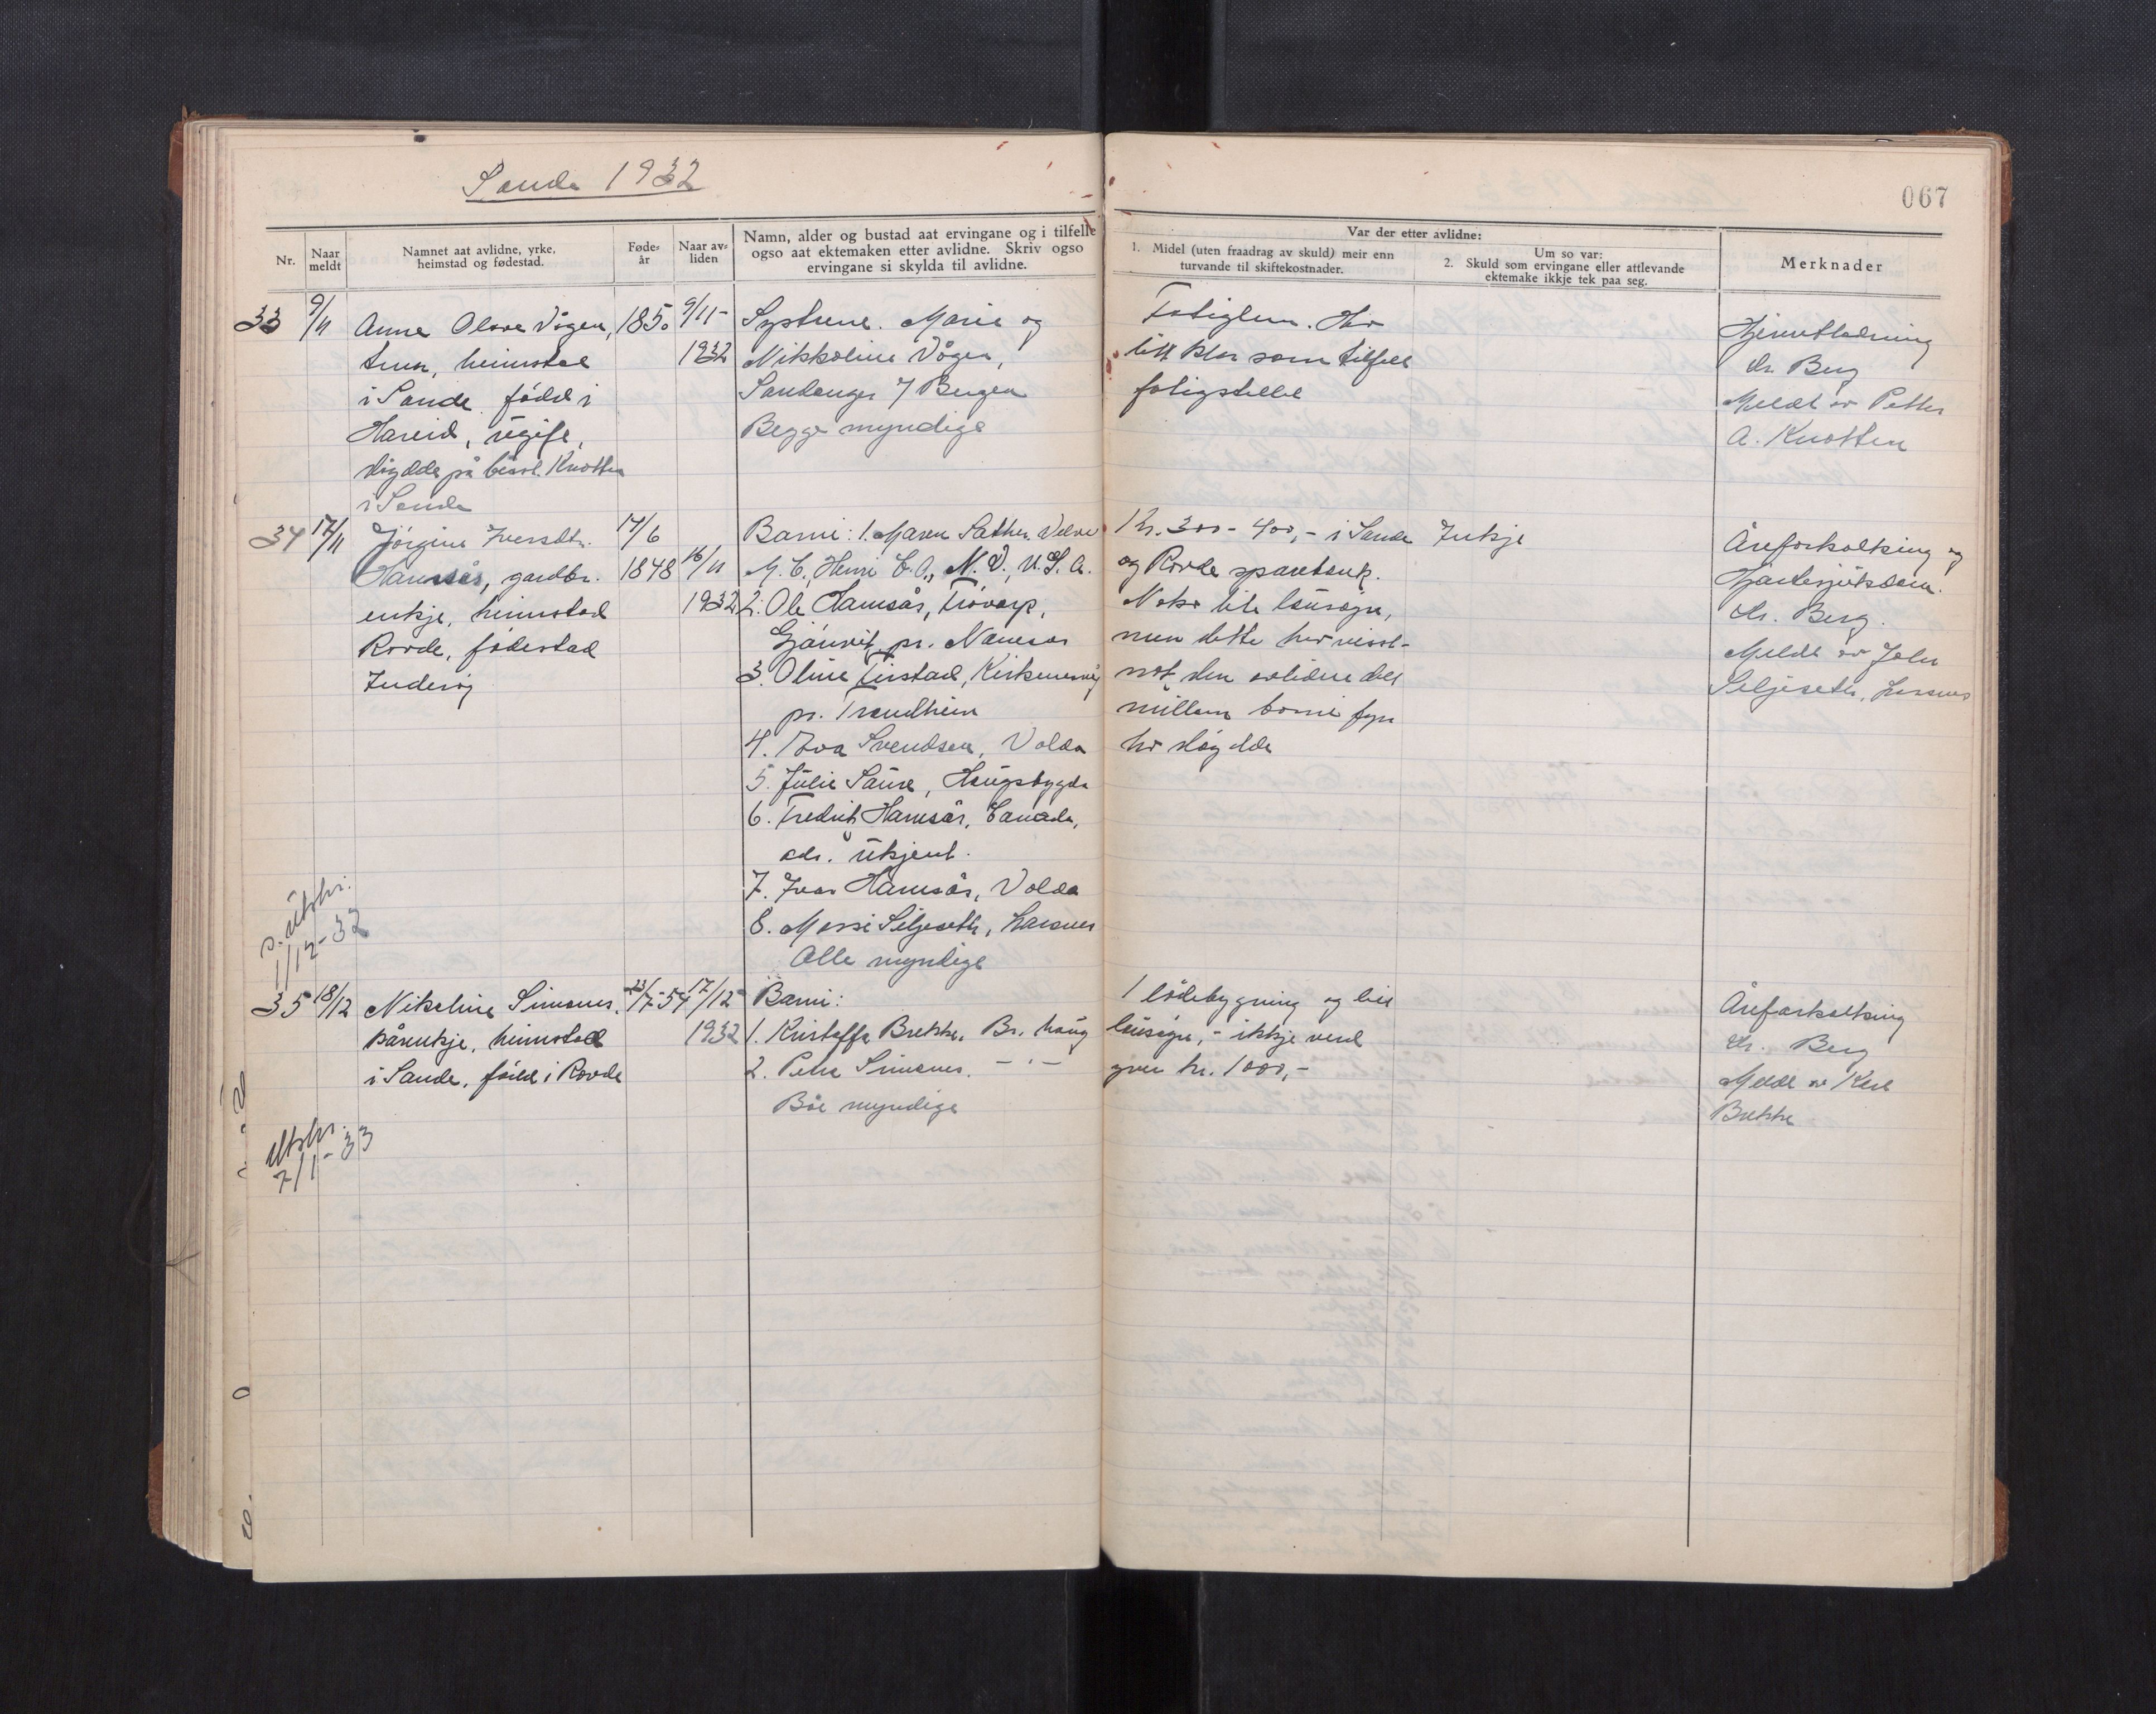 Sande 1932
067
Nr.
Naar meldt
Namnet aat avlidne, yrke, heimstad og fødestad.
Føde-år
Naar av-liden
Namn, alder og bustad aat ervingane og i tilfelle
ogso aat ektemaken etter avlidne. Skriv ogso
ervingane si skylda til avlidne.
Var der etter avlidne:
1. Midel (uten fraadrag av skuld) meir enn
turvande til skiftekostnader.
Um so var:
2. Skuld som ervingane eller attlevande
ektemake ikkje tek paa seg.
Merknader
33 9/11 Anne Olave Vågen,
heimstad
i Sande, född i
Hareid, ugift,
döydde på Knotten
i Sande
1850
9/11-
1932
Systrene. Marie og
Nikkoline Vågen,
Sandanger 7 Bergen
Begge myndige
Fatiglem. Har
litt klær som tilfell
fatigstellet
Hjerneblødning
dr. Berg
Meldt av Petter
A. Knotten
34 17/11 Jörgine Iversdtr.
Hamsås, gardbr.
enkje, heimstad
Rovde, födestad
Inderöy
17/6
1848
16/11
1932
Barni: 1. Maren Sather, Velva
N. D., U.S.A.
2. Ole Hamsås,
pr. Namsos
3. Oline Tinstad,
pr. Trondheim
4. Svendsen, Volda
5. Julie Saure, Haugsbygda
6. Fredrik Hamsås, Canada,
adr. ukjent.
7. Ivar Hamsås, Volda
8. Massi Seljeseth, Larsnes
Alle myndige
Kr. 300 - 400,- i Sande
og Rovde sparebank.
Noko lite lausøyre,
men dette har visst-
nok den avlidne delt
millom borni fyrr
ho døydde
Inkje
Åreforkalking og
Hjartesjukdom.
dr. Berg.
Meldt av John
Seljeseth, Larsnes
s. utskr.
1/12-32
35 18/12 Nikoline Simones.
kårenkje, heimstad
i Sande, född i Rovde
23/7-54
17/12
1932
Barni:
1. Kristoffa Brekke, Br. haug
2. Petra Simones. - " -
Båe myndige
1 lödebygning og litt
lausøyre, - ikkje verd
yver kr. 1000,-
Åreforkalking
dr. Berg
Meldt av Karl
Brekke
Utskr.
7/1-33